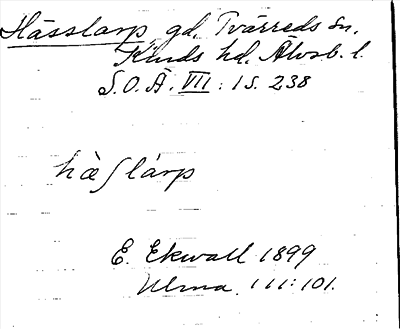 Hässlarp, gd. Tvärreds sn,
Kinds hd. Älvsb. l.
S.O.Ä. VII : 1 S. 238
hæʃlárp
E. Ekwall 1899
Ulma. 111:101.